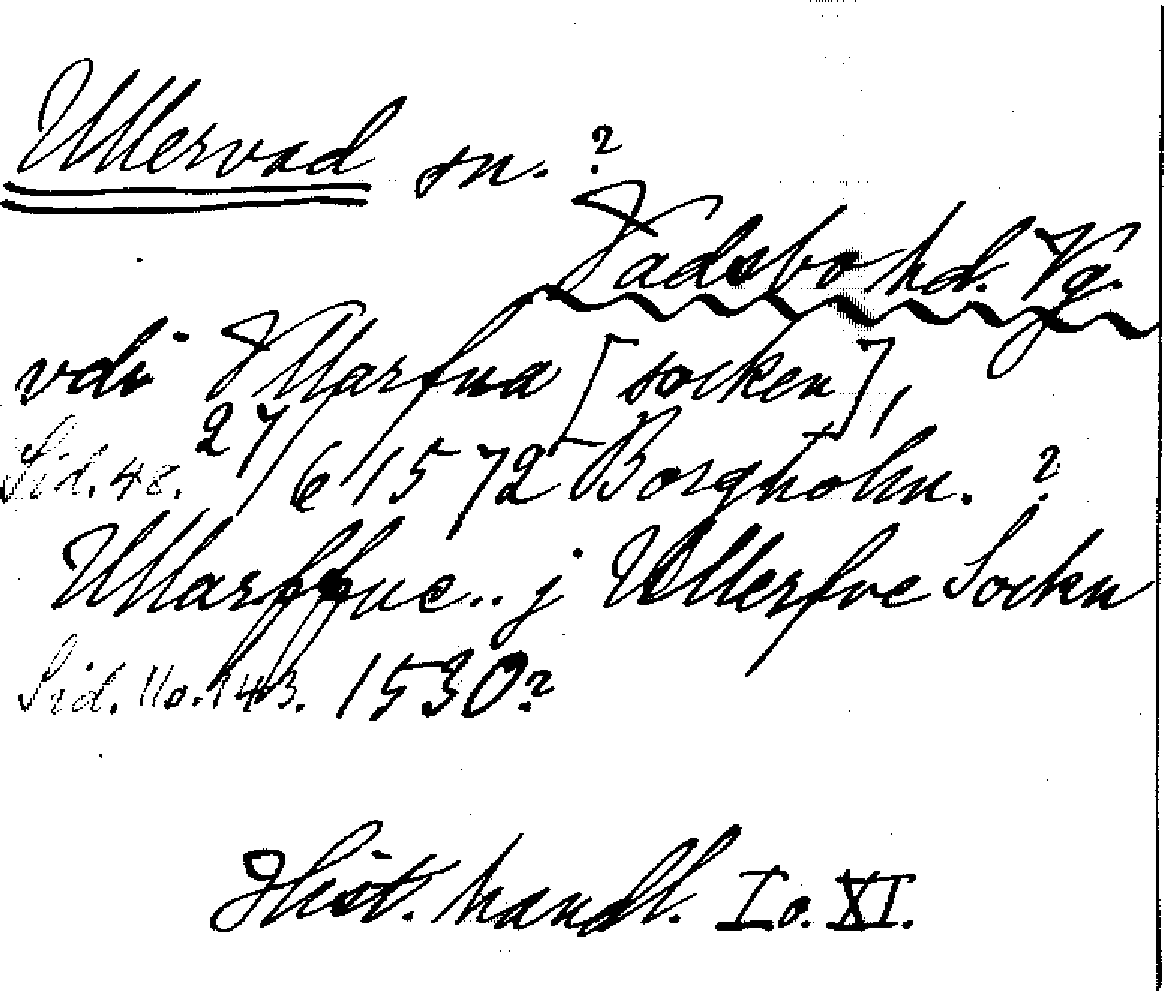 Ullervad sn. ?
Vadsbo hd. Vg.
vdi Ullarfua [socken],
Sid. 48. 27/6 1572 Borgholm. ?
Ullarffue.. j Ullerfue Sockn
Sid. 110. 143. 1530?
Hist. handl. I o. XI.